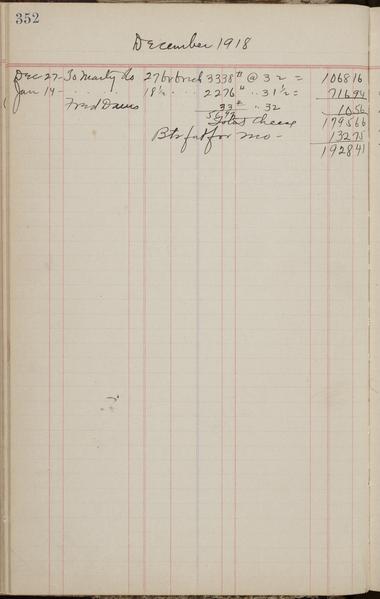 352
December 1918
Dec 27 - To Marty Co 27 bx brick 3338# @ 32 = 106816
Jan 14 - . . . . 18½ . . . 2276 " .. 31½ = 71694
Fred Davis 33# .. 32 1056
5647 Total Cheese 179566
Btrfat for mo - 13275
192841